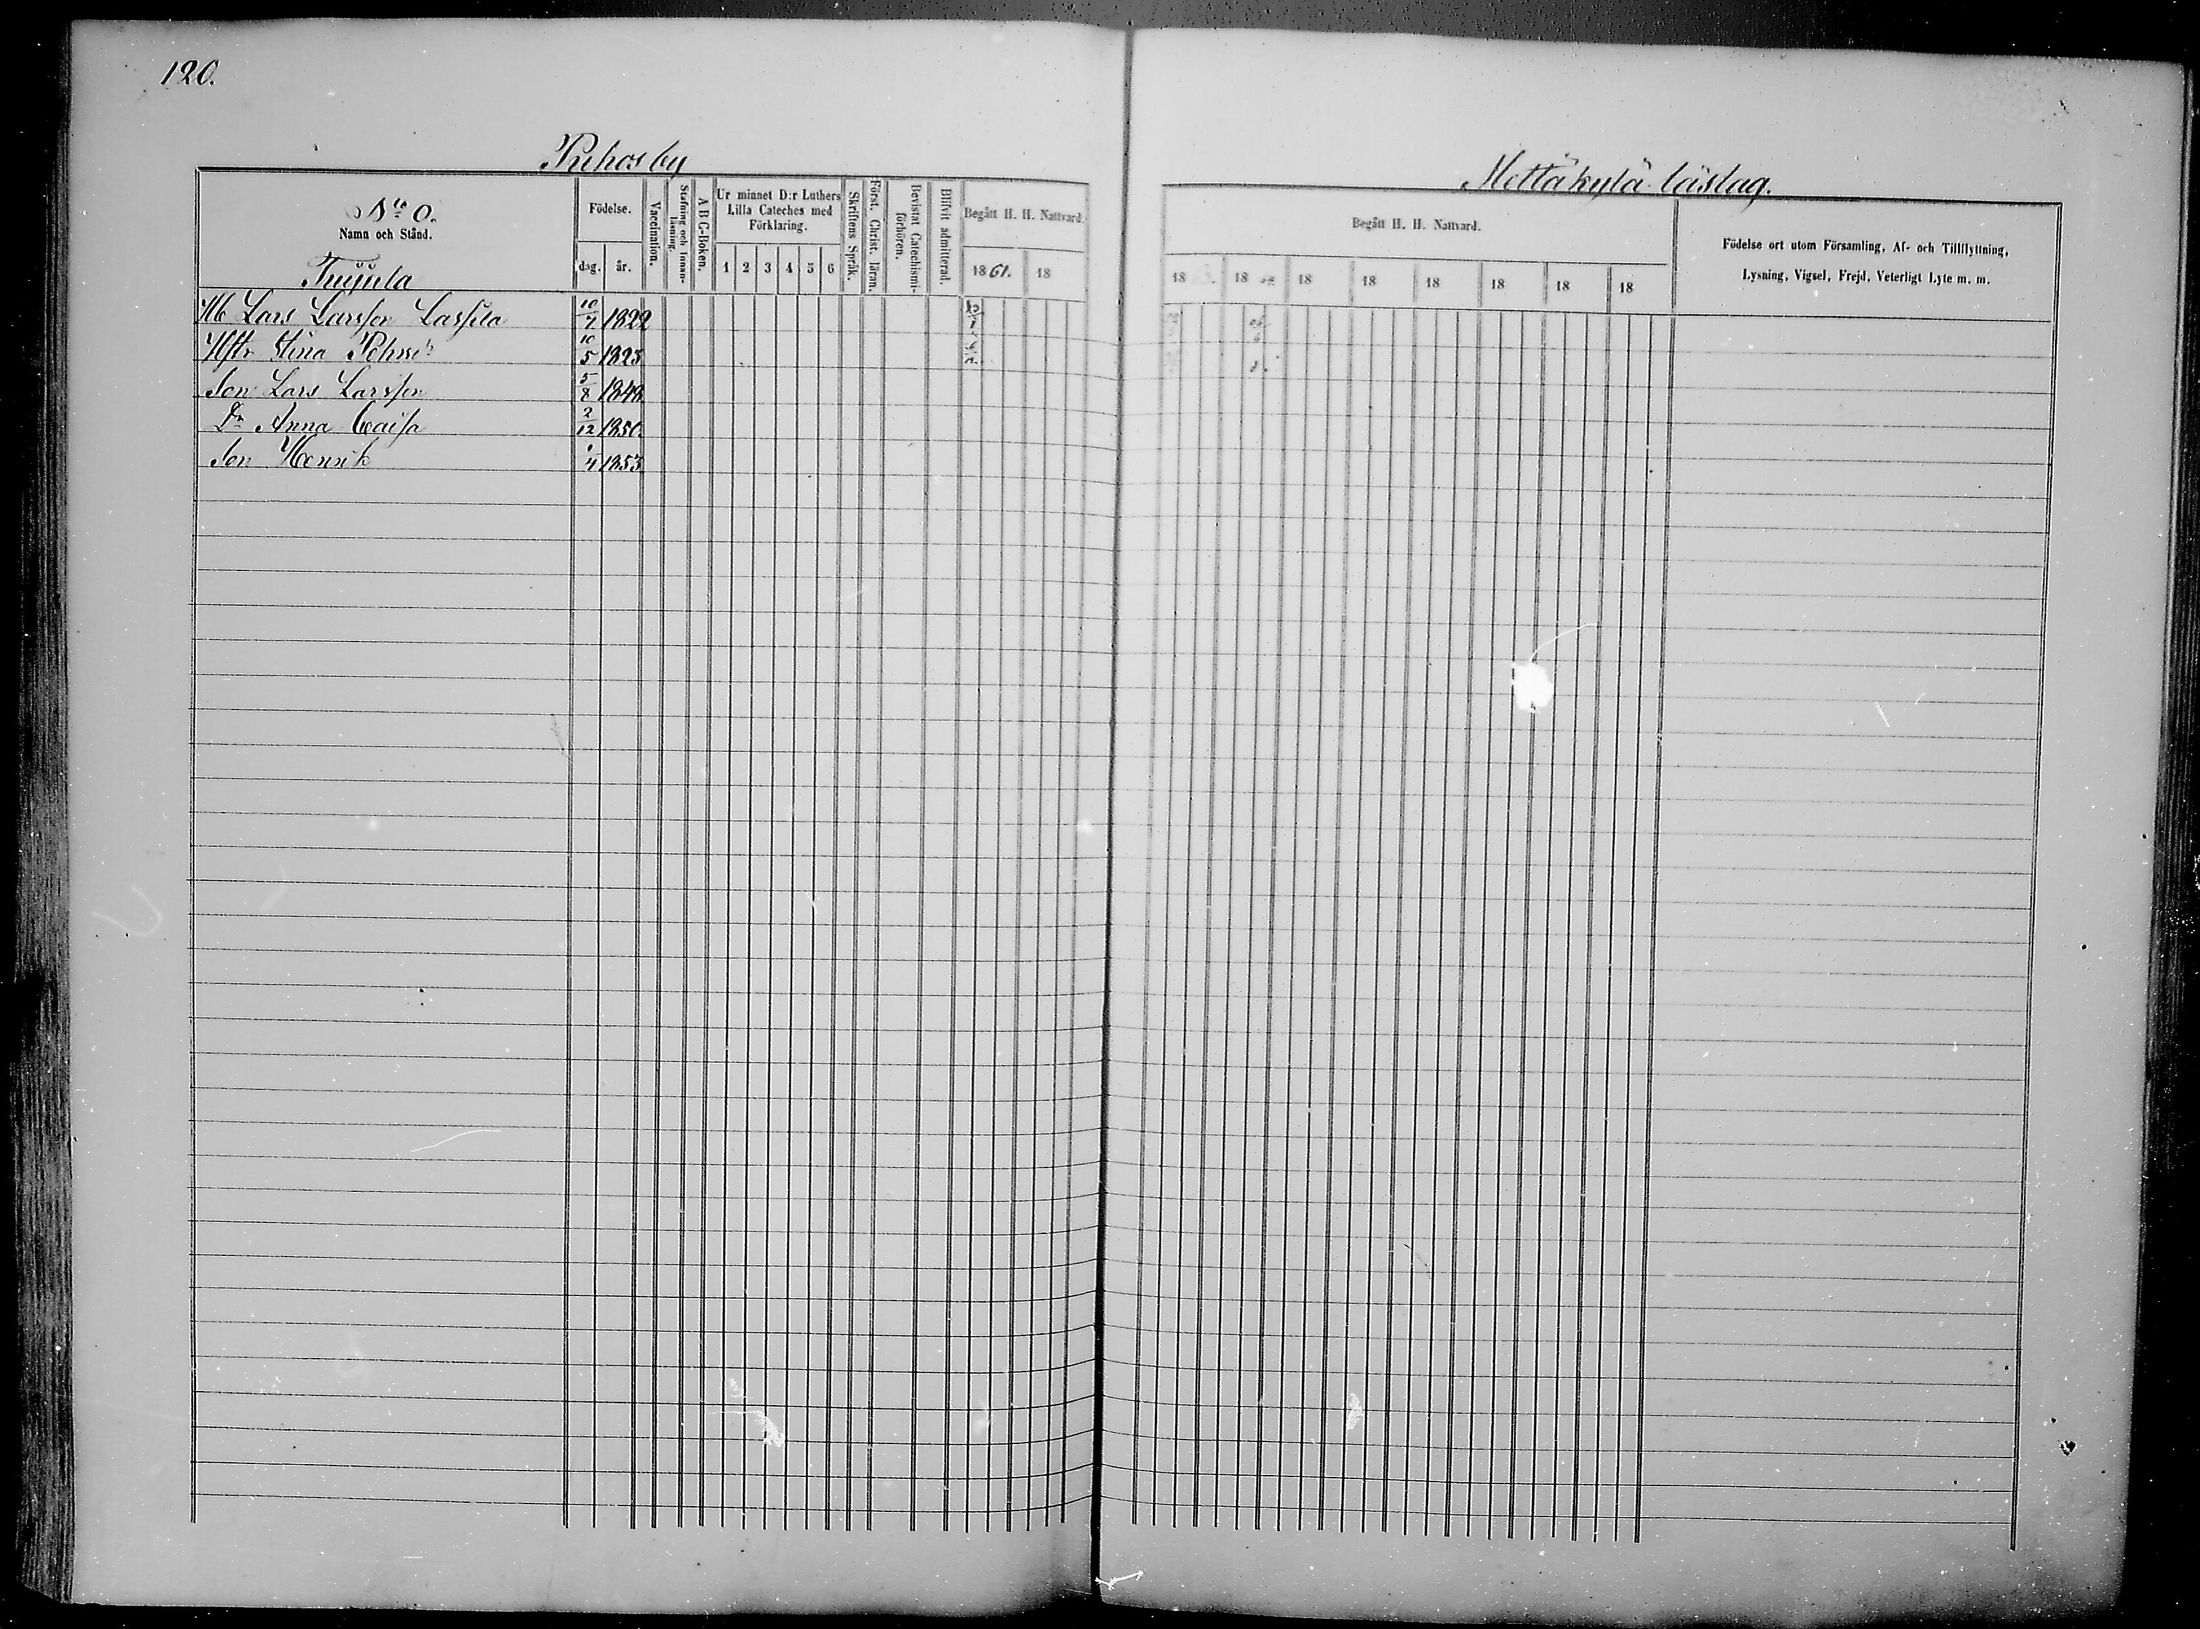 120.
Puhos by
Mettäkylä läslag.
No 0.
Namn och Stånd.
Födelse.
dag. år.
Vaccination.
Stafning och Innanläsning.
A B C-Boken.
Ur minnet D:r Luthers Lilla Cateches med Förklaring.
1 2 3 4 5 6
Skriftens Språk.
Först. Christ. läran.
Bevistat Catechismiförhören.
Blifvit admitterad.
Begått H. H. Nattvard.
1861. 18
Begått H. H. Nattvard.
18 18 18 18 18 18 18 18
Födelse ort utom Församling, Af- och Tillflyttning,
Lysning, Vigsel, Frejd, Veterligt Lyte m. m.
Lars Larsson Lassila 10/7 1822
Hstr Stina 10/5 1823
Son Lars Larsson 5/8 1848
Dr Anna Caisa 2/12 1850.
Son Henrik 1853